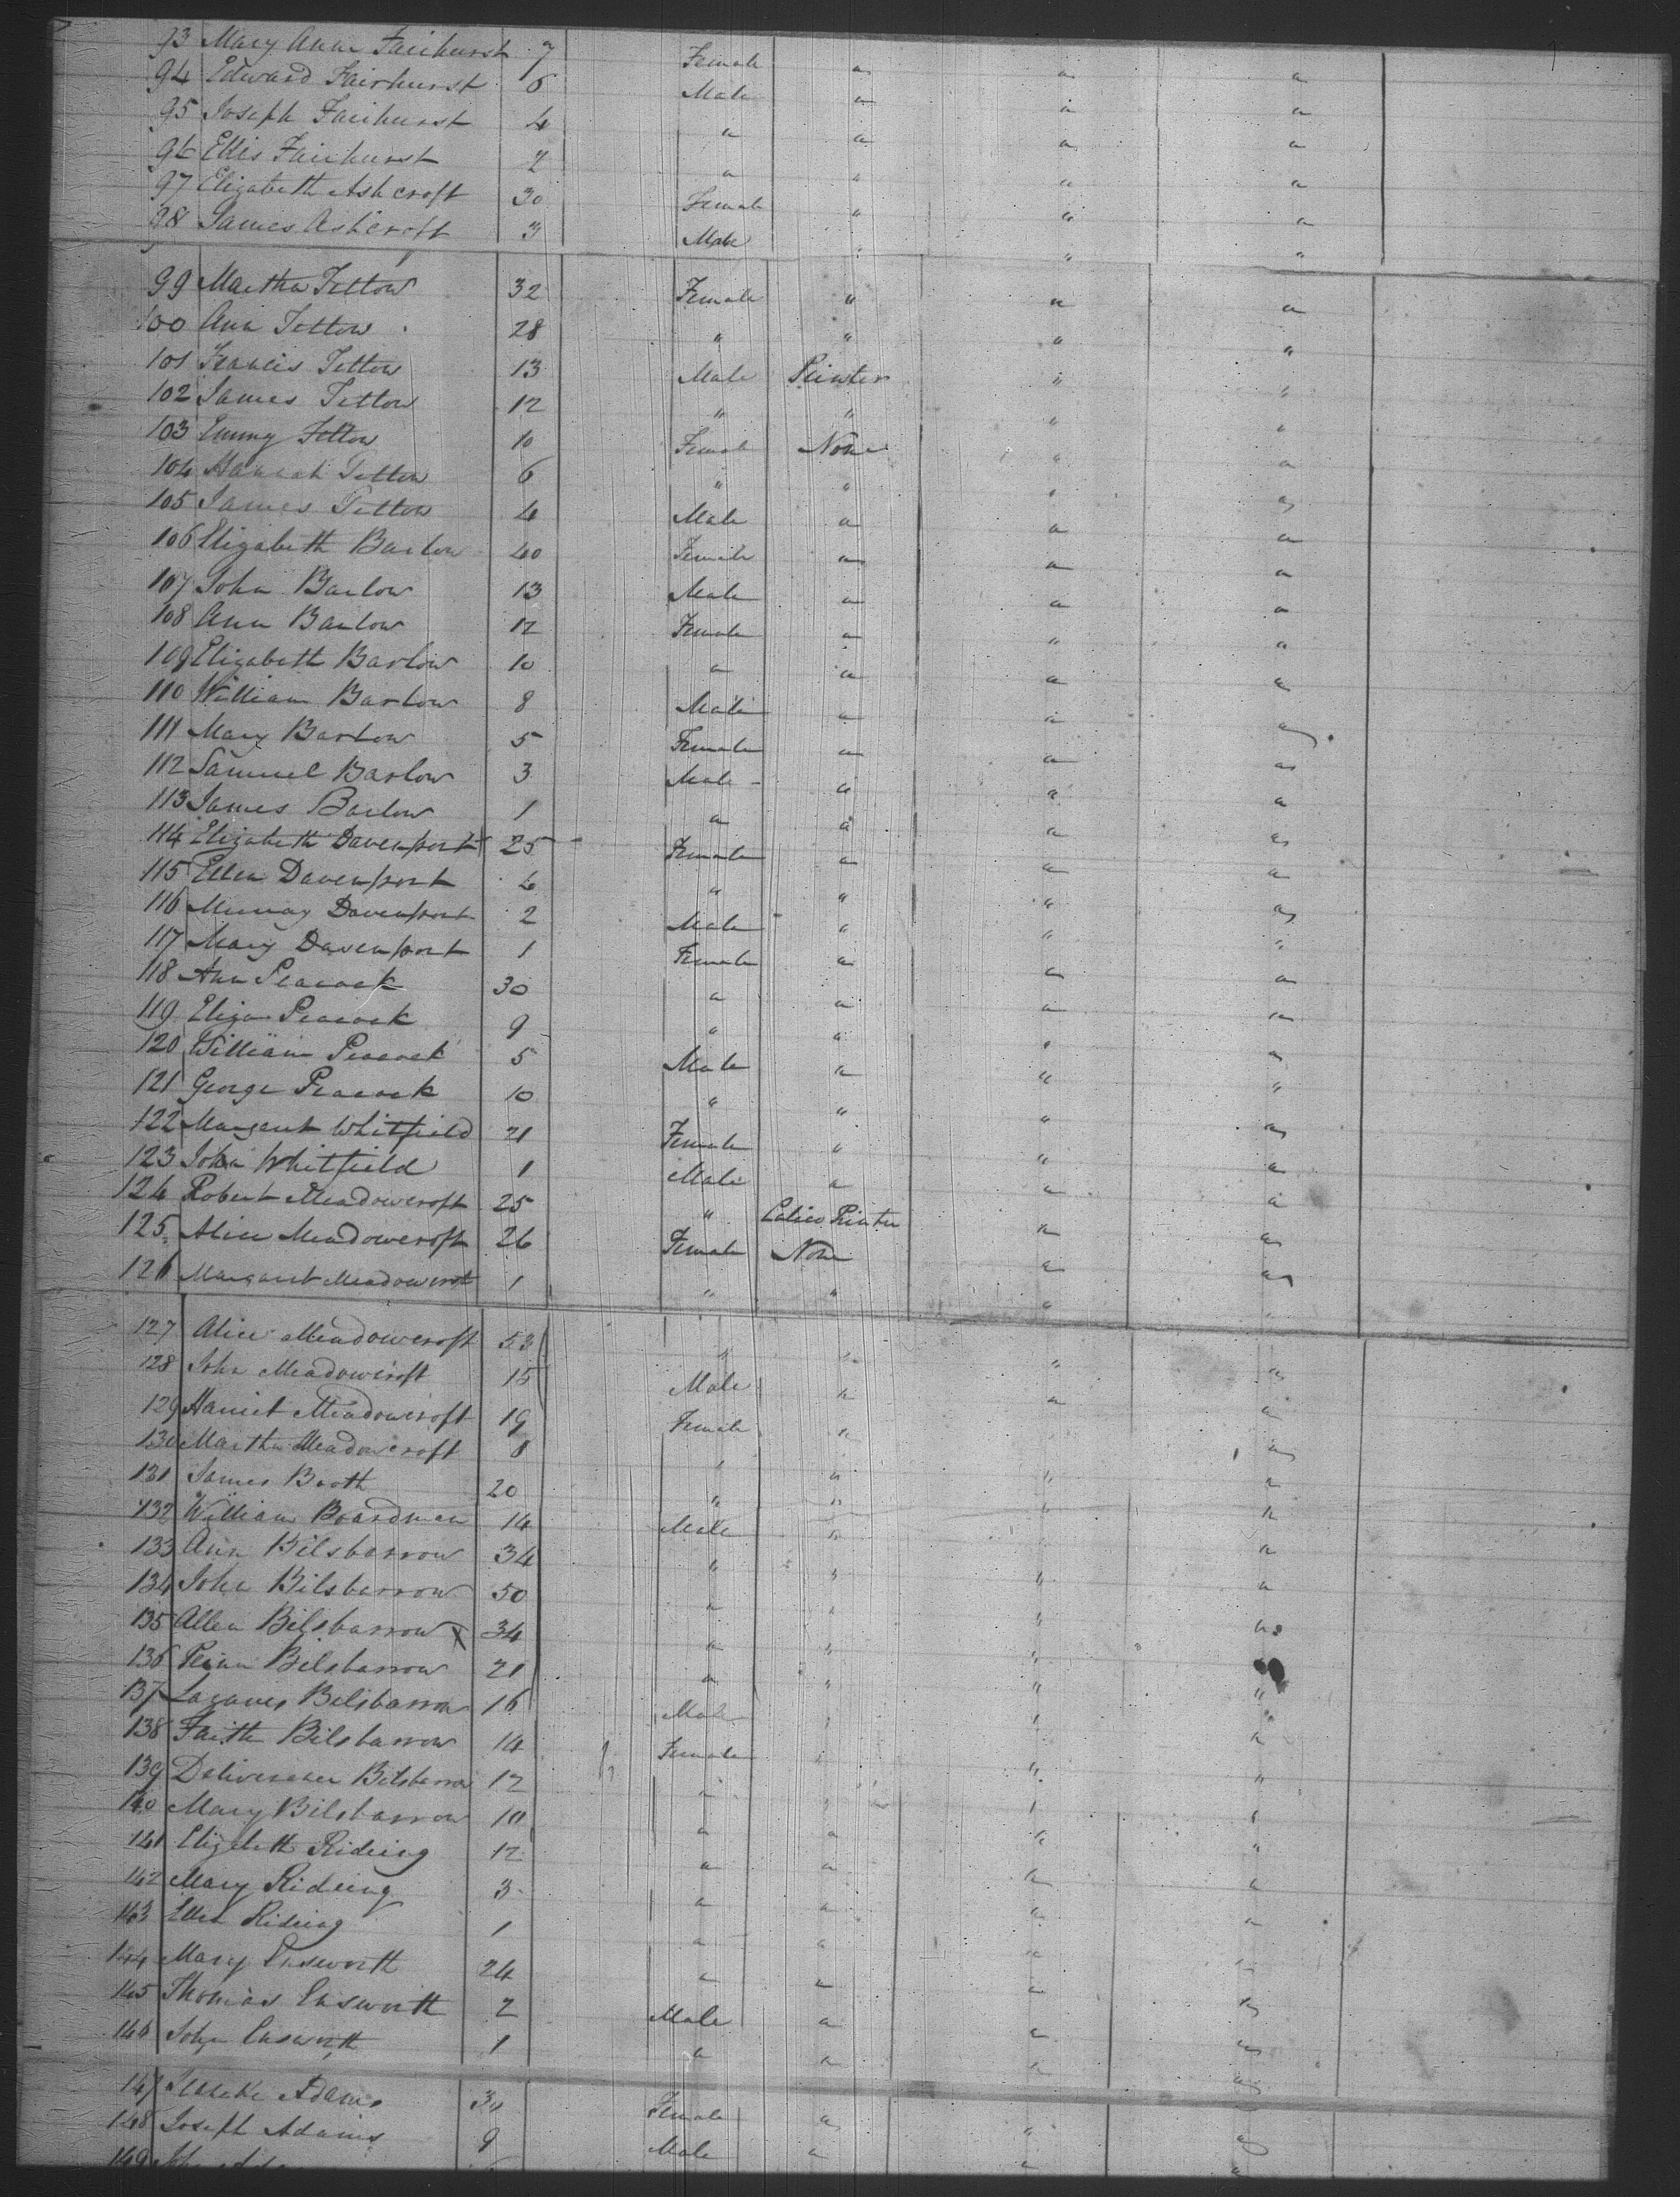 93 Mary Ann Fairhurst 7 Female " " "
94 Edward Fairhurst 6 Male " " "
95 Joseph Fairhurst 4 " " " "
96 Ellis Fairhurst 2 " " " "
97 Elizabeth Ashcroft 30 Female " " "
98 James Ashcroft 3 Male " " "
99 Martha Tettow 32 Female " " "
100 Ann Tettow 28 " " " "
101 Francis Tettow 13 Male Printer " "
102 James Tettow 12 " " " "
103 Emmy Tettow 10 Female None " "
104 Hannah Tettow 6 " " " "
105 James Tettow 4 Male " " "
106 Elizabeth Barlow 40 Female " " "
107 John Barlow 13 Male " " "
108 Ann Barlow 12 Female " " "
109 Elizabeth Barlow 10 " " " "
110 William Barlow 8 Male " " "
111 Mary Barlow 5 Female " " "
112 Samuel Barlow 3 Male " " "
113 James Barlow 1 " " " "
114 Elizabeth Davenport 25 Female " " "
115 Ellen Davenport 4 " " " "
116 Murray Davenport 2 Male " " "
117 Mary Davenport 1 Female " " "
118 Ann Peacock 30 " " " "
119 Eliza Peacock 9 " " " "
120 William Peacock 5 Male " " "
121 George Peacock 10 " " " "
122 Margaret Whitfield 21 Female " " "
123 John Whitfield 1 Male " " "
124 Robert Meadowcroft 25 " Calico Printer " "
125 Alice Meadowcroft 26 Female None " "
126 Margaret Meadowcroft 1 " " " "
127 Alice Meadowcroft 53 " " " "
128 John Meadowcroft 15 Male " " "
129 Harriet Meadowcroft 19 Female " " "
130 Martha Meadowcroft 8 " " " "
131 James Booth 20 " " " "
132 William Boardman 14 Male " " "
133 Ann Bilsbarrow 34 " " " "
134 John Bilsbarrow 50 " " " "
135 Allen Bilsbarrow 34 " " " "
136 Bilsbarrow 21 " " " "
137 Bilsbarrow 16 Male " " "
138 Faith Bilsbarrow 14 Female " " "
139 Deliverance Bilsbarrow 12 " " " "
140 Mary Bilsbarrow 10 " " " "
141 Elizabeth Riding 12 " " " "
142 Mary Riding 3 " " " "
143 Ellen Riding 1 " " " "
144 Mary Ensworth 24 " " " "
145 Thomas Ensworth 2 Male " " "
146 John Ensworth 1 " " " "
147 Adams Female " " "
148 Joseph Adams 9 Male " " "
149